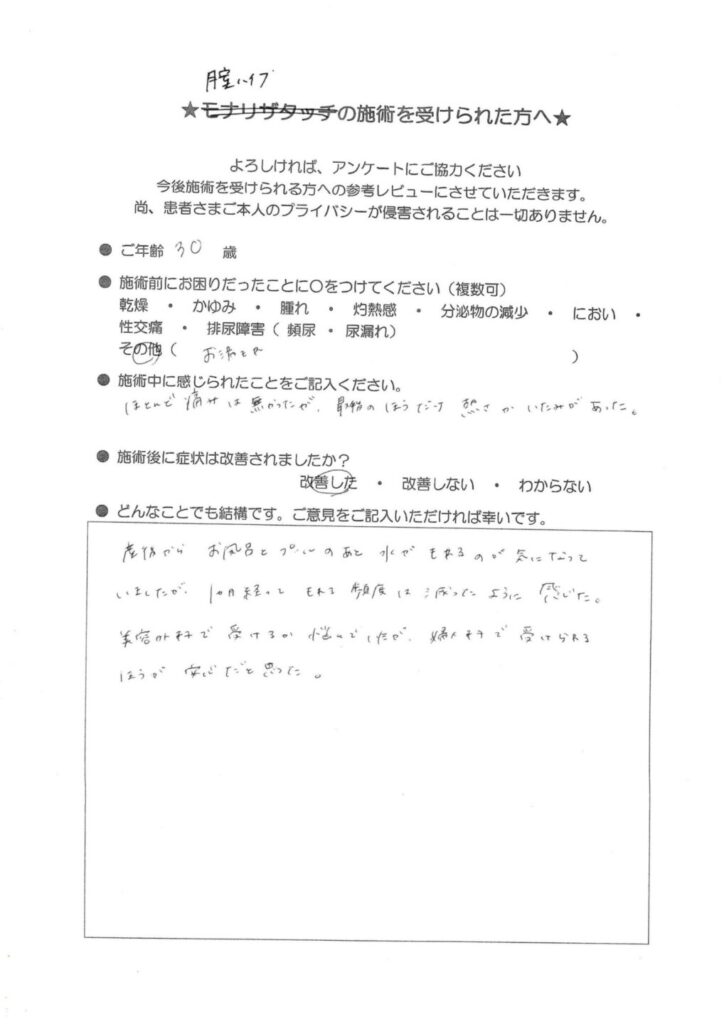 膣ハイフ
★モナリザタッチの施術を受けられた方へ★
よろしければ、アンケートにご協力ください
今後施術を受けられる方への参考レビューにさせていただきます。
尚、患者さまご本人のプライバシーが侵害されることは一切ありません。
● ご年齢 30 歳
● 施術前にお困りだったことに〇をつけてください（複数可）
乾燥 ・ かゆみ ・ 腫れ ・ 灼熱感 ・ 分泌物の減少 ・ におい ・
性交痛 ・ 排尿障害（ 頻尿 ・ 尿漏れ）
その他（ お湯もれ ）
● 施術中に感じられたことをご記入ください。
ほとんど痛みは無かったが、のほうだけ熱さかいたみがあった。
● 施術後に症状は改善されましたか？
改善した ・ 改善しない ・ わからない
● どんなことでも結構です。ご意見をご記入いただければ幸いです。
産後から お風呂とプールのあと 水がもれるのが気になって
いましたが、1ヶ月経って もれる頻度は減ったように感じた。
美容外科で受けるか悩んでいたが、婦人科で受けられる
ほうが安心だと思った。